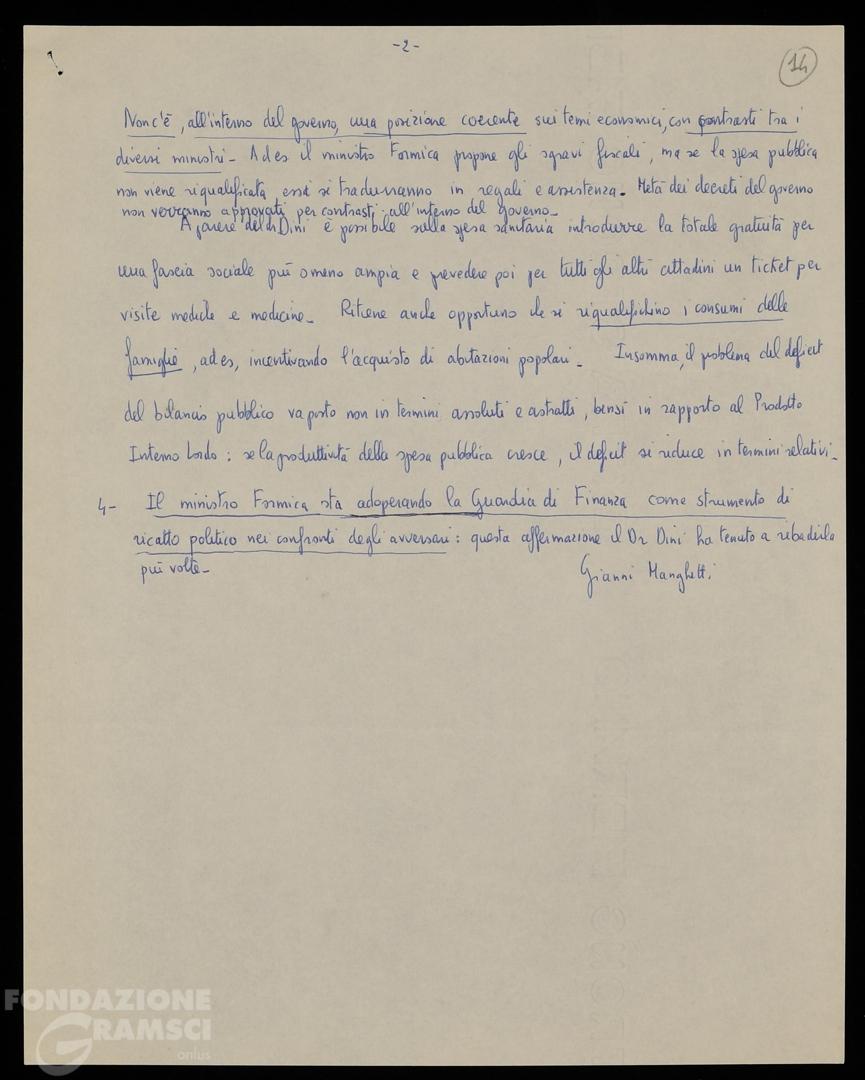 -2-
14
Non c'è, all'interno del governo, una posizione coerente sui temi economici, con contrasti tra i
diversi ministri - Ad es il ministro Formica propone gli sgravi fiscali, ma se la spesa pubblica
non viene riqualificata essi si tradurranno in regali e assistenza. Metà dei decreti del governo
non verranno approvati per contrasti all'interno del governo -
A parere del dr Dini è possibile sulla spesa sanitaria introdurre la totale gratuità per
una fascia sociale più o meno ampia e prevedere poi per tutti gli altri cittadini un ticket per
visite mediche e medicine - Ritiene anche opportuno che si riqualifichino i consumi delle
famiglie, ad es, incentivando l'acquisto di abitazioni popolari - Insomma, il problema del deficit
del bilancio pubblico va posto non in termini assoluti e astratti, bensì in rapporto al Prodotto
Interno Lordo: se la produttività della spesa pubblica cresce, il deficit si riduce in termini relativi -
4- Il ministro Formica sta adoperando la Guardia di Finanza come strumento di
ricatto politico nei confronti degli avversari: questa affermazione il Dr Dini ha tenuto a ribadirla
più volte -
Gianni Manghetti
FONDAZIONE
GRAMSCI
onlus